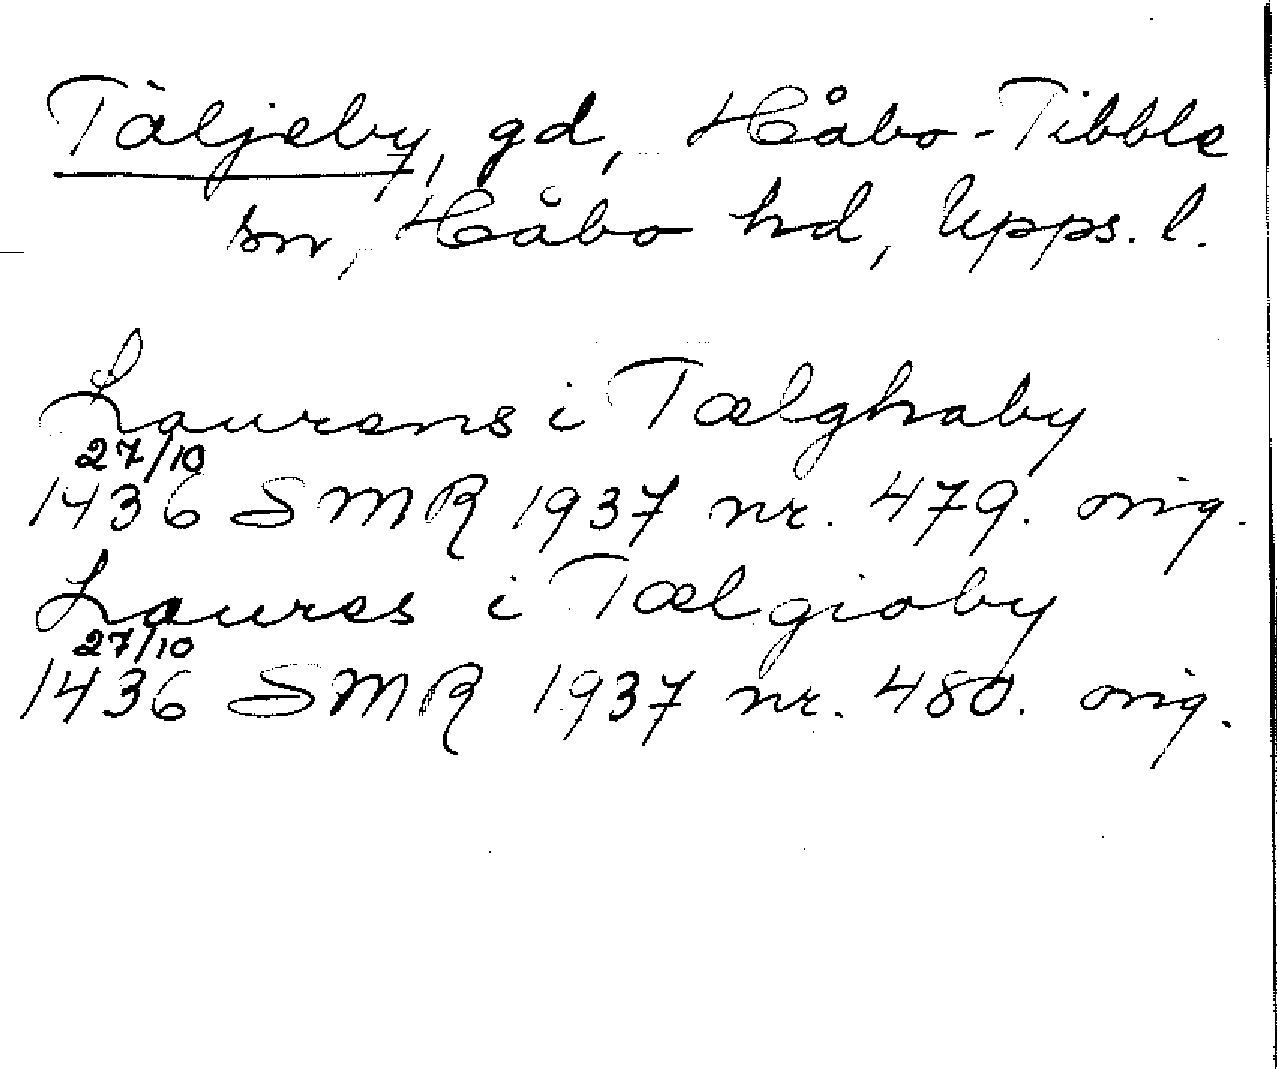 Täljeby, gd, Håbo-Tibble
sn, Håbo hd, Upps. l.
Laurens i Tælghaby
27/10
1436 SMR 1937 nr. 479. orig.
Laures i Tælgiaby
27/10
1436 SMR 1937 nr. 480. orig.